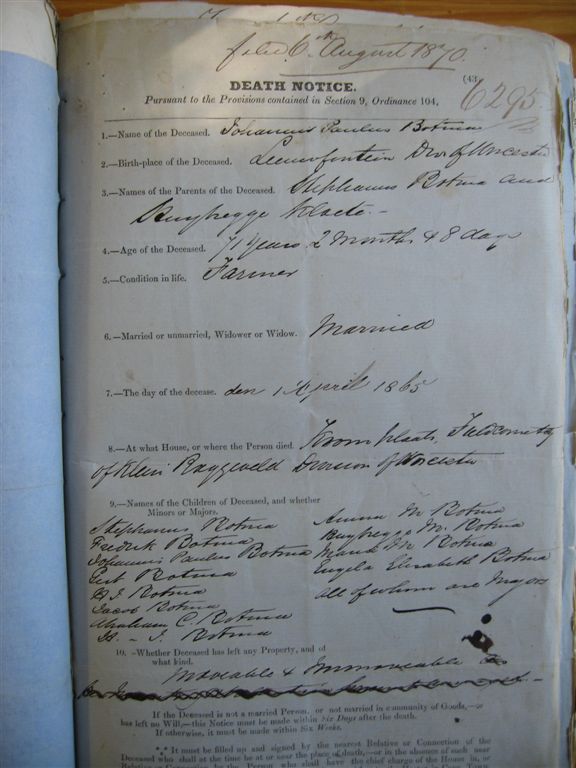 filed 6th August 1870.
(43
6295
DEATH NOTICE.
Pursuant to the Provisions contained in Section 9, Ordinance 104,
1.—Name of the Deceased. Johannes Paulus Botma
2.—Birth-place of the Deceased. Leeuwfontein Div of Worcester
3.—Names of the Parents of the Deceased. Stephanus Botma and
4.—Age of the Deceased. 71 years 2 Months & 8 days
5.—Condition in life. Farmer
6.—Married or unmarried, Widower or Widow. Married
7.—The day of the decease. den 1 April 1865
8.—At what House, or where the Person died. Kromplaats, Fieldcornetcy
of Klein Roggeveld Division of Worcester
9.—Names of the Children of Deceased, and whether
Minors or Majors.
Stephanus Botma
Fredrik Botma
Johannes Paulus Botma
Botma
Botma
Jacob Botma
Abraham C. Botma
J. Botma
Anna M Botma
M. Botma
Maria M Botma
Engela Elizabeth Botma
All of whom are Majors
10. -Whether Deceased has left any Property, and of
what kind.
Moveable & Immoveable
If the Deceased is not a married Person, or not married in community of Goods,—or
has left no Will,—this Notice must be made within Six Days after the death.
If otherwise, it must be made within Six Weeks.
It must be filled up and signed by the nearest Relative or Connection of the
Deceased who shall at the time be at or near the place of death,—or in the absence of such near
Relative or Connection, by the Person who shall have the chief charge of the House in, or